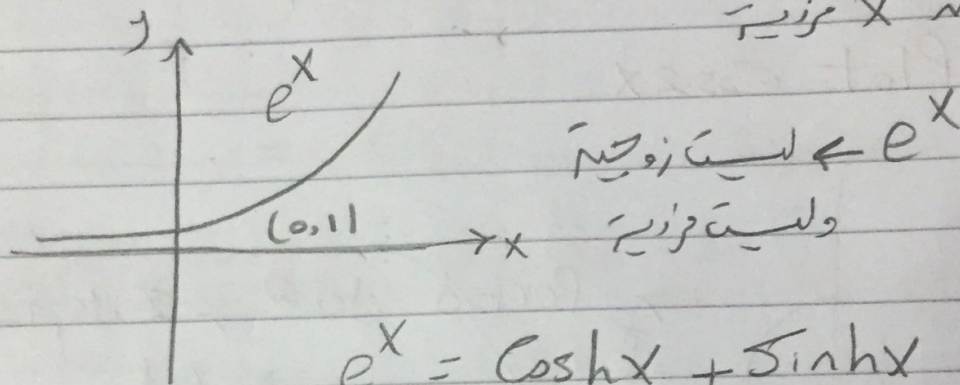 x فردية
y
e^x
e^x ← ليست زوجية
(0,1)
x
وليست فردية
e^x = Coshx + Sinhx